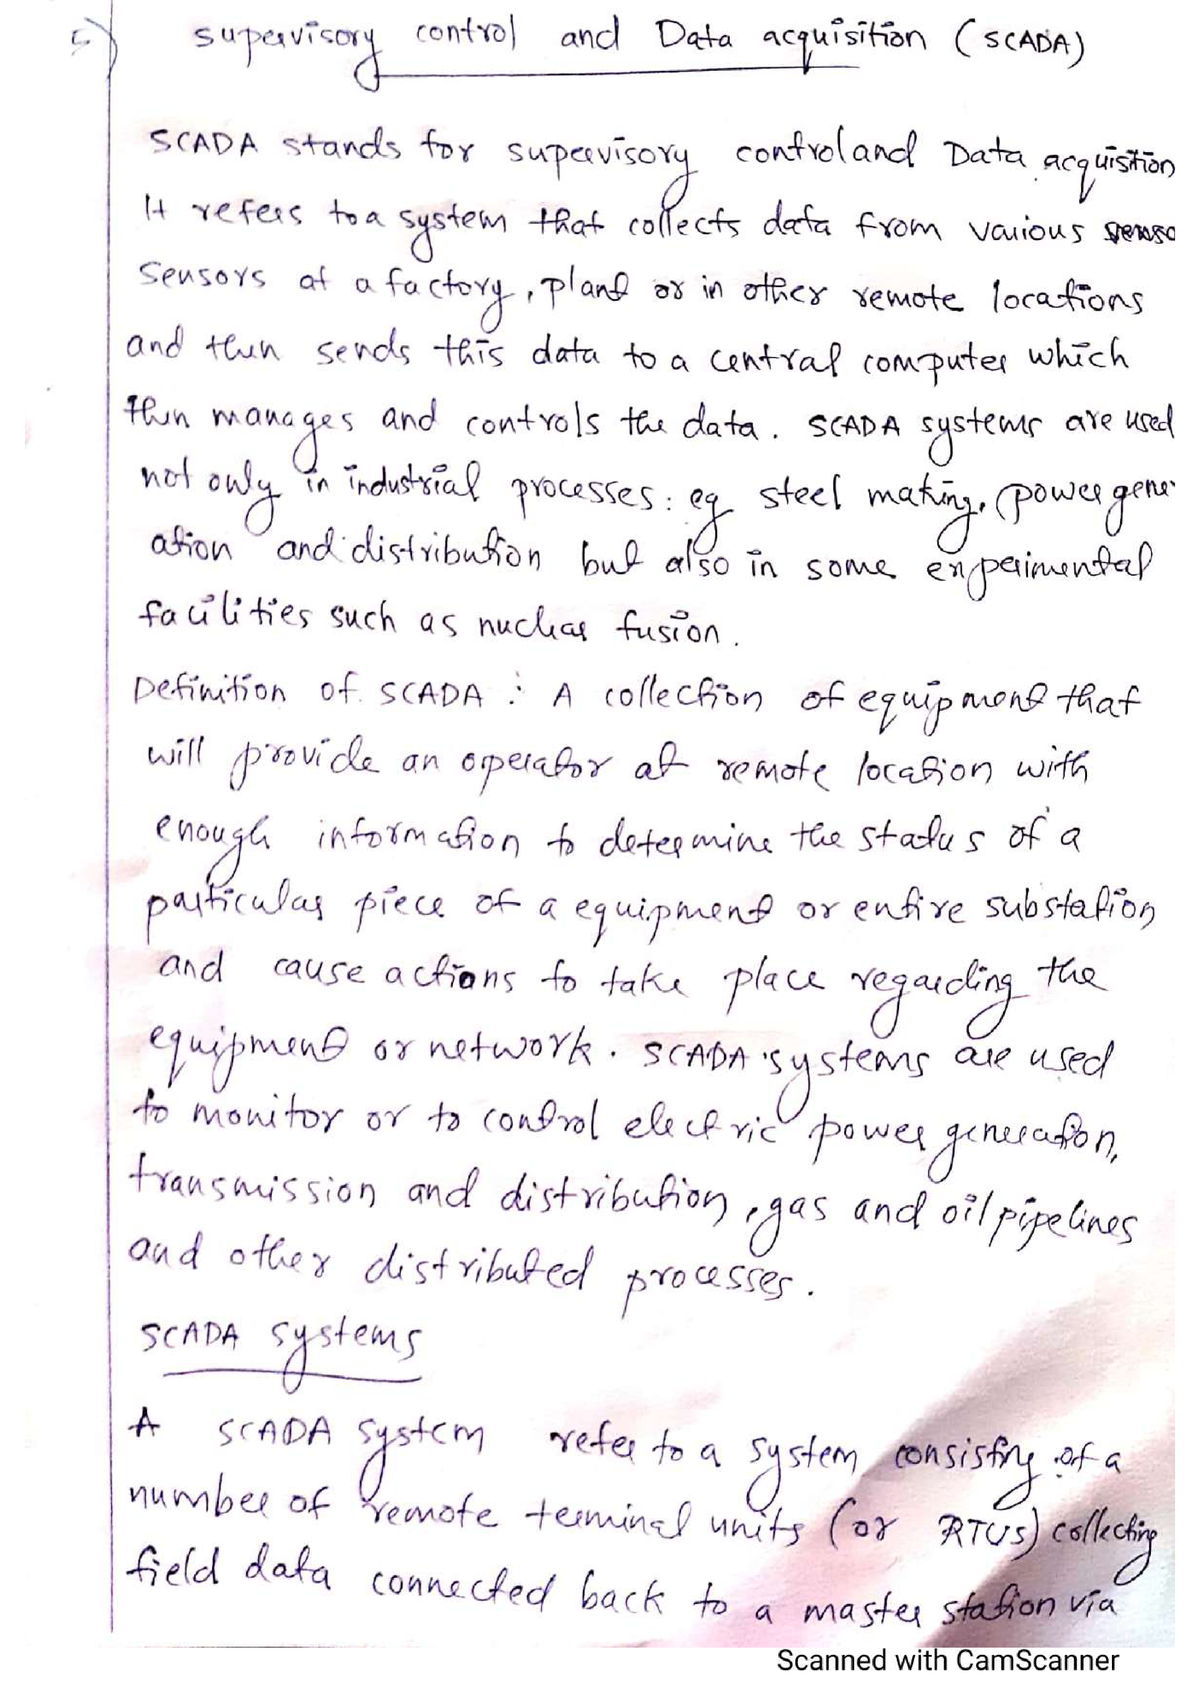 5) Supervisory control and Data acquisition (SCADA)
SCADA stands for supervisory control and Data acquistion
It refers to a system that collects data from various senso
sensors at a factory, plant or in other remote locations
and then sends this data to a central computer which
then manages and controls the data. SCADA systems are used
not only in industrial processes: eg steel making, power gene
ation and distribution but also in some experimental
facilities such as nuclear fusion.
Definition of SCADA : A collection of equipment that
will provide an operator at remote location with
enough information to determine the status of a
particular piece of a equipment or entire substation
and cause actions to take place regarding the
equipment or network. SCADA systems are used
to monitor or to control electric power generation,
transmission and distribution, gas and oil pipelines
and other distributed processes.
SCADA systems
A SCADA system refer to a system consisting of a
number of remote terminal units (or RTUS) collecting
field data connected back to a master station via
Scanned with CamScanner